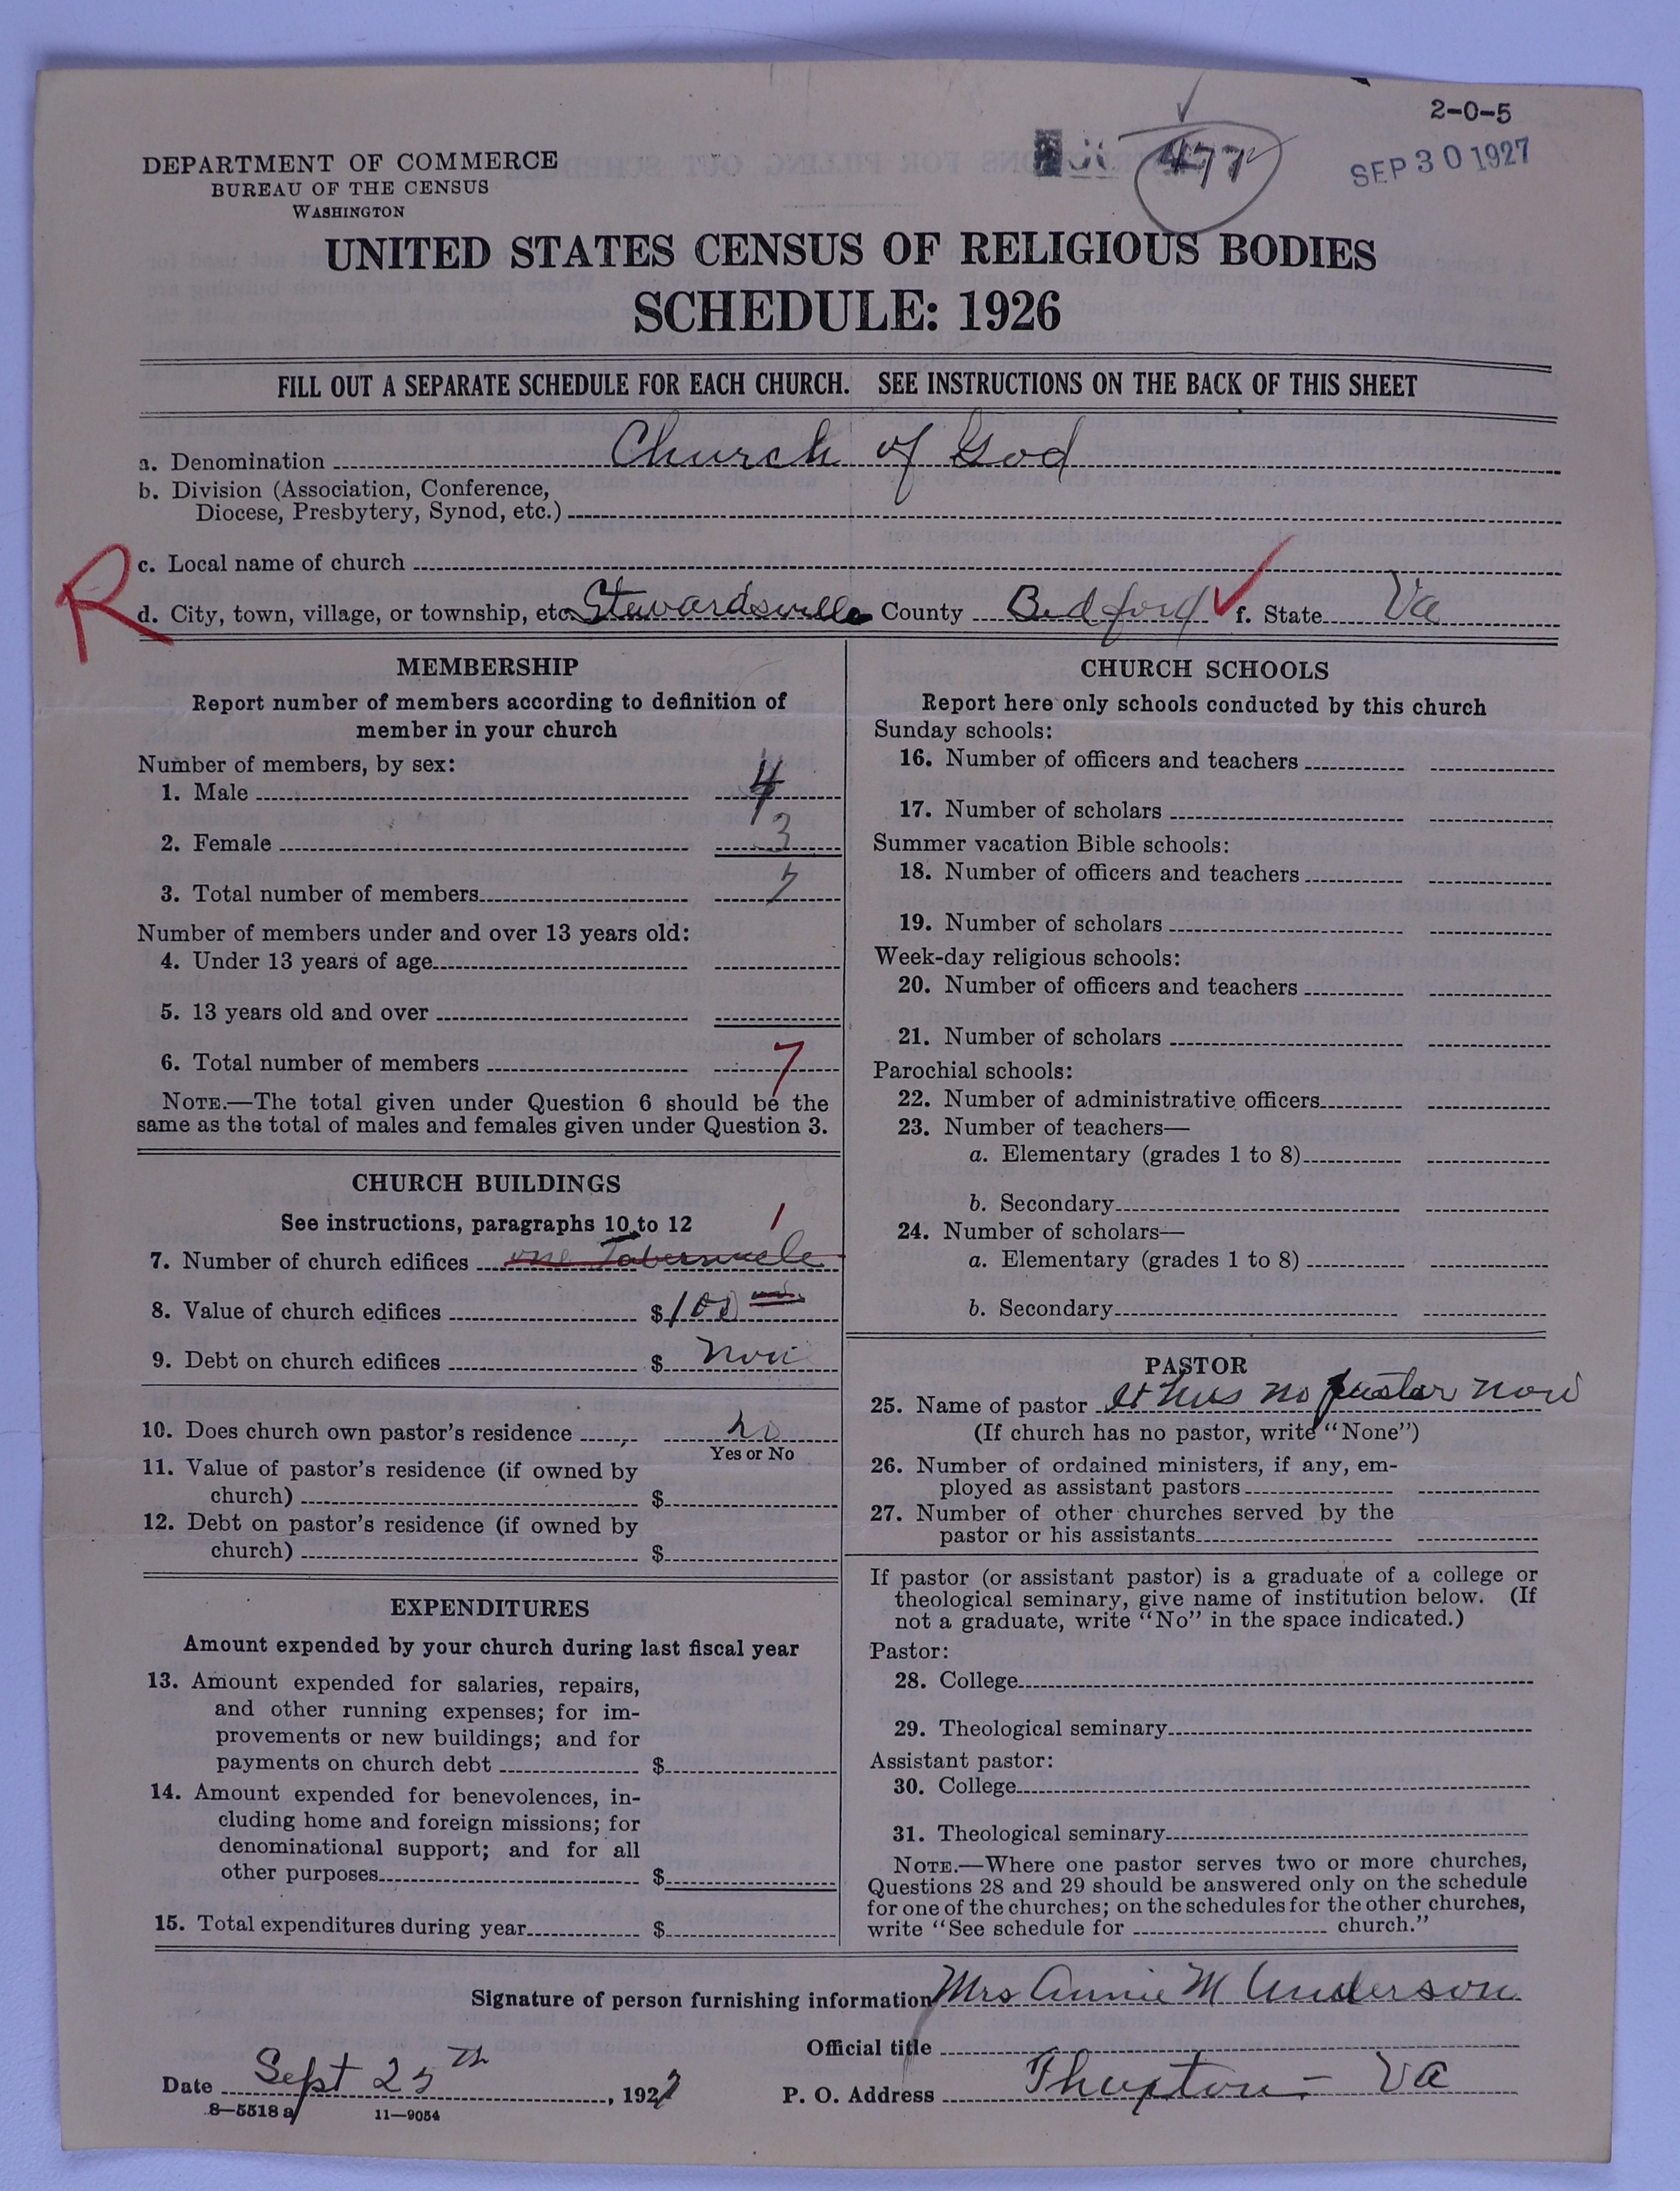 2-0-5
SEP 30 1927
477
DEPARTMENT OF COMMERCE
BUREAU OF THE CENSUS
WASHINGTON
UNITED STATES CENSUS OF RELIGIOUS BODIES
SCHEDULE: 1926
FILL OUT A SEPARATE SCHEDULE FOR EACH CHURCH. SEE INSTRUCTIONS ON THE BACK OF THIS SHEET
a. Denomination Church of God
b. Division (Association, Conference,
Diocese, Presbytery, Synod, etc.)
c. Local name of church
R
d. City, town, village, or township, etc. Stewardsville County Bedford f. State Va
MEMBERSHIP
Report number of members according to definition of
member in your church
Number of members, by sex:
1. Male 4
2. Female 3
3. Total number of members 7
Number of members under and over 13 years old:
4. Under 13 years of age
5. 13 years old and over
6. Total number of members 7
NOTE.—The total given under Question 6 should be the
same as the total of males and females given under Question 3.
CHURCH BUILDINGS
See instructions, paragraphs 10 to 12
1
7. Number of church edifices one Tabernacle
8. Value of church edifices $100
9. Debt on church edifices $ non
10. Does church own pastor's residence no
Yes or No
11. Value of pastor's residence (if owned by
church) $
12. Debt on pastor's residence (if owned by
church) $
EXPENDITURES
Amount expended by your church during last fiscal year
13. Amount expended for salaries, repairs,
and other running expenses; for im-
provements or new buildings; and for
payments on church debt $
14. Amount expended for benevolences, in-
cluding home and foreign missions; for
denominational support; and for all
other purposes $
15. Total expenditures during year $
CHURCH SCHOOLS
Report here only schools conducted by this church
Sunday schools:
16. Number of officers and teachers
17. Number of scholars
Summer vacation Bible schools:
18. Number of officers and teachers
19. Number of scholars
Week-day religious schools:
20. Number of officers and teachers
21. Number of scholars
Parochial schools:
22. Number of administrative officers
23. Number of teachers—
a. Elementary (grades 1 to 8)
b. Secondary
24. Number of scholars—
a. Elementary (grades 1 to 8)
b. Secondary
PASTOR
25. Name of pastor it has no pastor now
(If church has no pastor, write "None")
26. Number of ordained ministers, if any, em-
ployed as assistant pastors
27. Number of other churches served by the
pastor or his assistants
If pastor (or assistant pastor) is a graduate of a college or
theological seminary, give name of institution below. (If
not a graduate, write "No" in the space indicated.)
Pastor:
28. College
29. Theological seminary
Assistant pastor:
30. College
31. Theological seminary
NOTE.—Where one pastor serves two or more churches,
Questions 28 and 29 should be answered only on the schedule
for one of the churches; on the schedules for the other churches,
write "See schedule for church."
Signature of person furnishing information Mrs Annie M Anderson
Official title
Date Sept 25th, 1927 P. O. Address Thaxton - Va
8-5518 a 11-9054